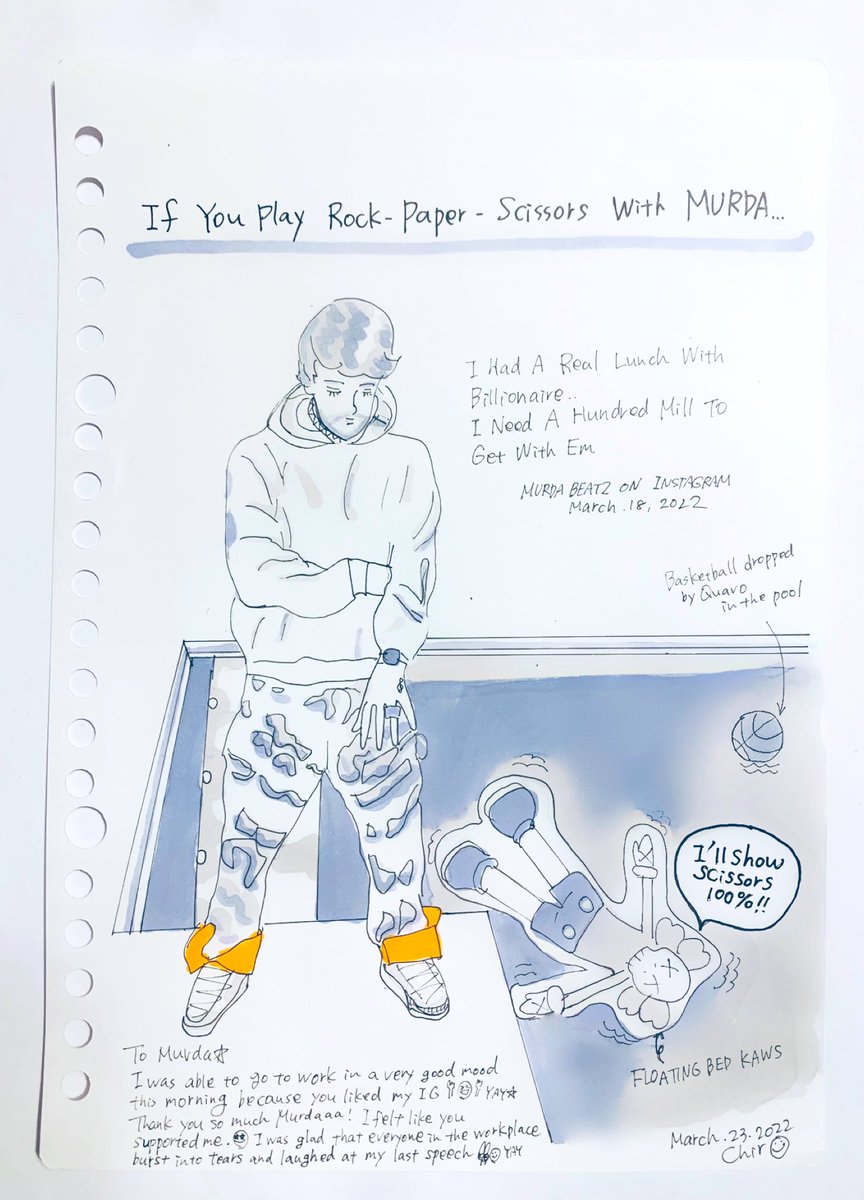 If You Play Rock-Paper-Scissors With MURDA...
I Had A Real Lunch With
Billionaire..
I Need A Hundred Mill To
Get With Em
MURDA BEATZ ON INSTAGRAM
March.18, 2022
Basketball dropped
by Quavo
in the pool
I'll show
scissors
100%!!
FLOATING BED KAWS
To Murda☆
I was able to go to work in a very good mood
this morning because you liked my IG YAY☆
Thank you so much Murdaaa! I felt like you
supported me. I was glad that everyone in the workplace
burst into tears and laughed at my last speech YAY
March.23.2022
Chir